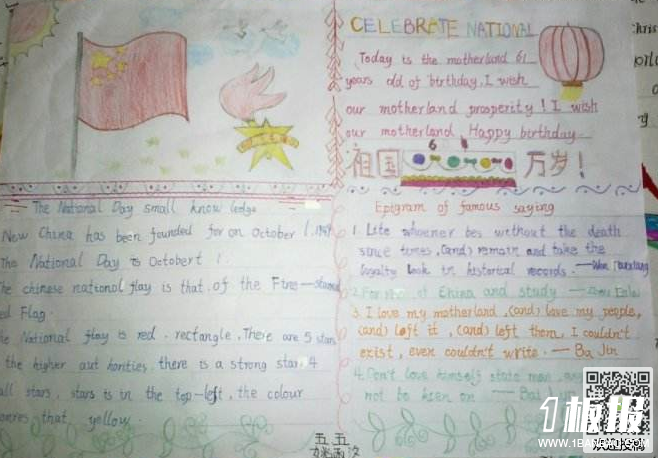 CELEBRATE NATIONAL
Today is the motherland 61
years old of birthday. I wish
our motherland prosperity! I wish
our motherland Happy birthday
祖国
6 1
万岁!
The National Day small know ledge
New China has been founded for on October 1, 1949
The National Day is Octobert 1.
he chinese national flag is that of the Five-starred
ed Flag
he National flag is red. rectangle, There are 5 stars
the higher aut horities there is a strong star. 4
all stars, stars is in the top-left, the colour
that yellow.
Epigram of famous saying
1. Life whenner bes without the death
since times, (and) remain and take the
loyalty look in historical records. — Wen
2. For China and study —
3. I love my motherland, (and) love my people,
(and) left it, (and) left them, I couldn't
exist, even couldn't write. — Ba Jin
4. Don't love himself state man,
not be kien on — Bai
五 五
1板报
WWW.1BANBAO.COM
欢迎投稿
Chris